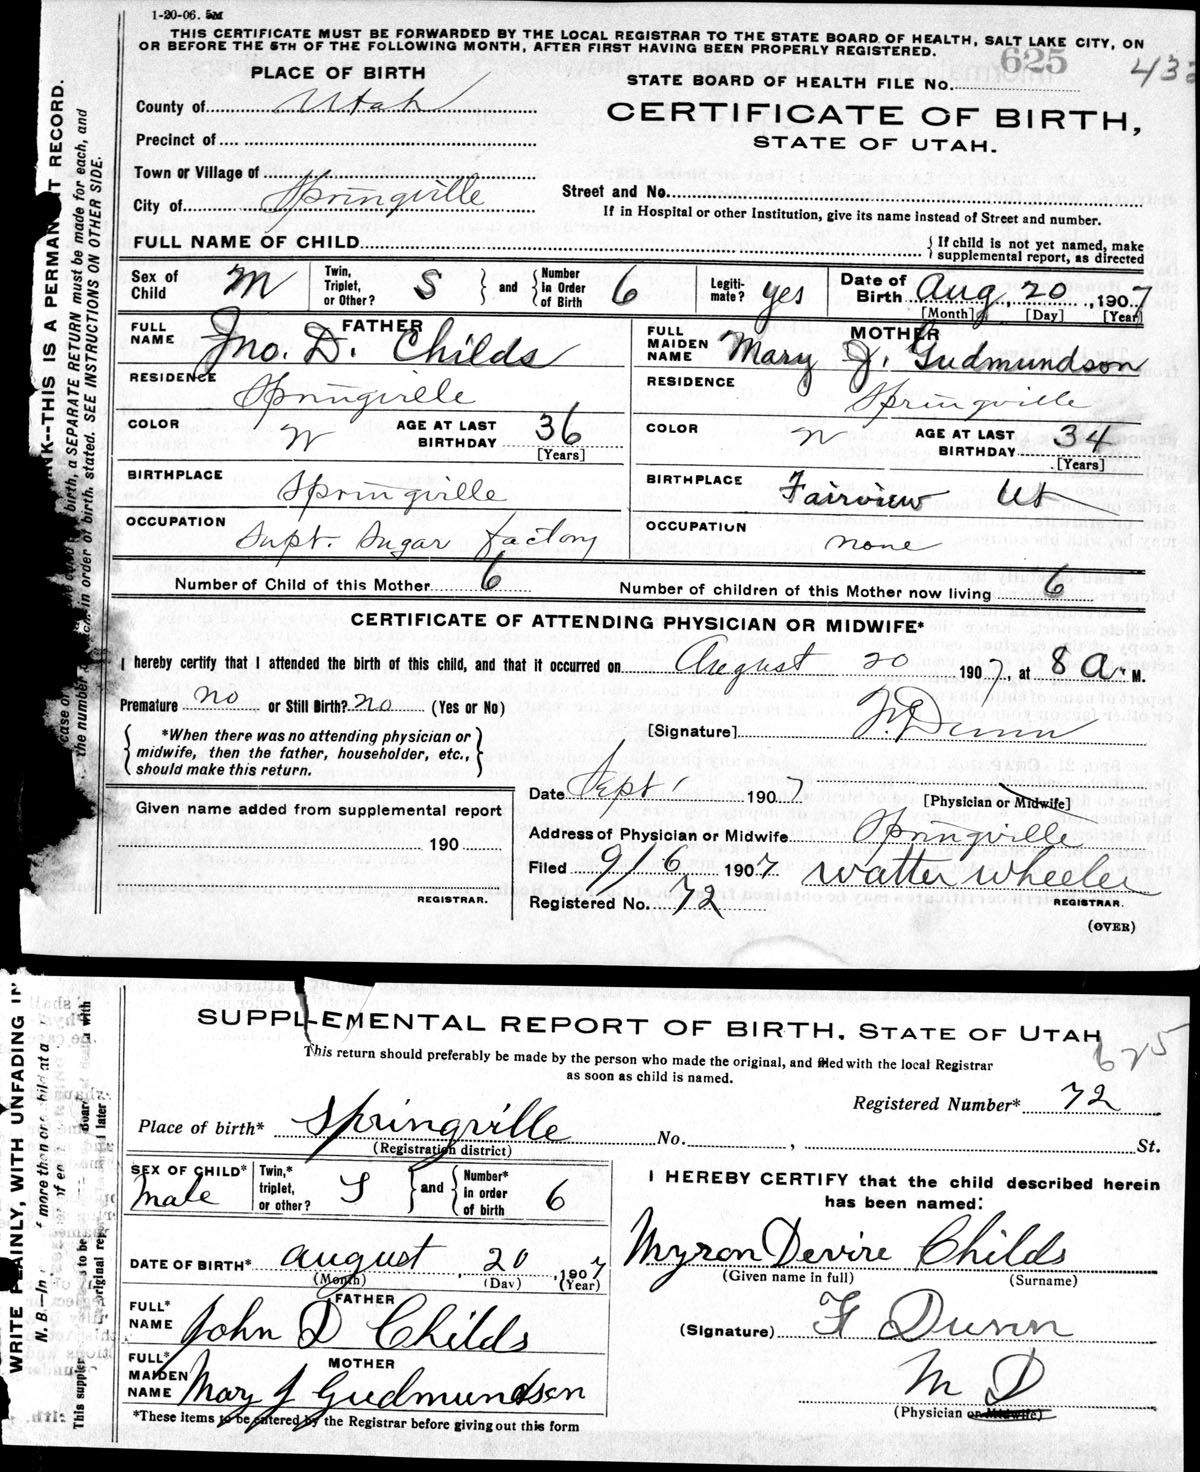 1-20-06.
THIS CERTIFICATE MUST BE FORWARDED BY THE LOCAL REGISTRAR TO THE STATE BOARD OF HEALTH, SALT LAKE CITY, ON
OR BEFORE THE 5TH OF THE FOLLOWING MONTH, AFTER FIRST HAVING BEEN PROPERLY REGISTERED.
625
PLACE OF BIRTH
STATE BOARD OF HEALTH FILE No.
County of Utah
CERTIFICATE OF BIRTH,
STATE OF UTAH.
Precinct of
Town or Village of
City of Springville
Street and No.
If in Hospital or other Institution, give its name instead of Street and number.
FULL NAME OF CHILD
{ If child is not yet named, make supplemental report, as directed
Sex of Child M Twin, Triplet, or Other? S } and { Number In Order of Birth 6 Legiti-mate? yes Date of Birth Aug 20, 1907
[Month] [Day] [Year]
FATHER
FULL NAME Jno. D. Childs
MOTHER
FULL MAIDEN NAME Mary J. Gudmundson
RESIDENCE Springville
RESIDENCE Springville
COLOR W AGE AT LAST BIRTHDAY 36 [Years]
COLOR W AGE AT LAST BIRTHDAY 34 [Years]
BIRTHPLACE Springville
BIRTHPLACE Fairview Ut
OCCUPATION Supt. Sugar factory
OCCUPATION none
Number of Child of this Mother 6 Number of children of this Mother now living 6
CERTIFICATE OF ATTENDING PHYSICIAN OR MIDWIFE*
I hereby certify that I attended the birth of this child, and that it occurred on August 20 1907, at 8 a. M.
Premature no or Still Birth? no (Yes or No)
[Signature] F. Dunn
{ *When there was no attending physician or midwife, then the father, householder, etc., should make this return. }
Date Sept 1 1907
[Physician or Midwife]
Given name added from supplemental report
190
Address of Physician or Midwife Springville
Filed 9/6 1907 Walter Wheeler
REGISTRAR.
Registered No. 72
REGISTRAR.
(OVER)
INK--THIS IS A PERMANENT RECORD.
birth, a SEPARATE RETURN must be made for each, and
the number in order of birth, stated. SEE INSTRUCTIONS ON OTHER SIDE.
SUPPLEMENTAL REPORT OF BIRTH, STATE OF UTAH
625
This return should preferably be made by the person who made the original, and filed with the local Registrar
as soon as child is named.
Registered Number* 72
Place of birth* Springville No. , St.
(Registration district)
SEX OF CHILD* Male Twin,* triplet, or other? S } and { Number* in order of birth 6
I HEREBY CERTIFY that the child described herein
has been named:
Myron Devire Childs
(Given name in full) (Surname)
DATE OF BIRTH* August 20, 1907
(Month) (Day) (Year)
FATHER
FULL* NAME John D Childs
(Signature) F Dunn
M D
(Physician or Midwife)
MOTHER
FULL* MAIDEN NAME Mary J Gudmundsen
*These items to be entered by the Registrar before giving out this form
WRITE PLAINLY, WITH UNFADING IN